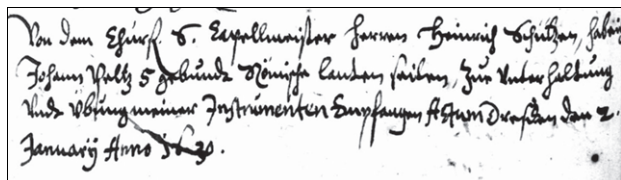 Von dem Churf. S. Capellmeister Herren Heinrich Schützen, habe ich
Johann Peltz 5 gebundt Römische lauten seiten, zur Unterhaltung
Undt Übung meiner Instrumenten Empfangen Actum Dresden den 2.
January Anno 1630.